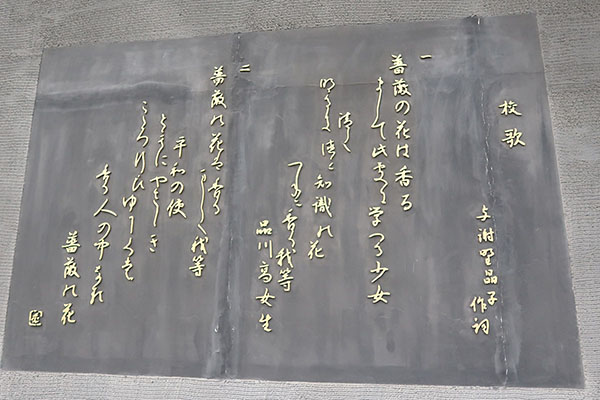 校歌
与謝野晶子 作詞
一
薔薇の花は香る
まして此處に学べる少女
清く
明るき 徳と知識の花
つねに香る我等
品川高女生
二
薔薇の花は香る
我等
平和の使
ともにやさしき
人の中なれ
薔薇の花